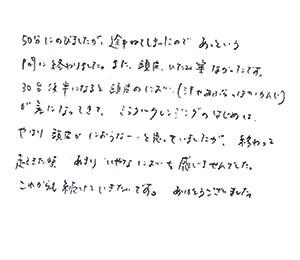 50分にのびましたが、途中ねてしまったので あっという
間に終わりました。また、頭皮、いたみ等 なかったです。
30分後半になると 頭皮のにおい(汗やあぶらっぽいかんじ)
が気になってきて、ミラクルクレンジングのはじめは、
やはり頭皮がにおうなーと思っていましたが、終わって
起きた頃 あまりいやなにおいを感じませんでした。
これからも続けていきたいです。 ありがとうございました。